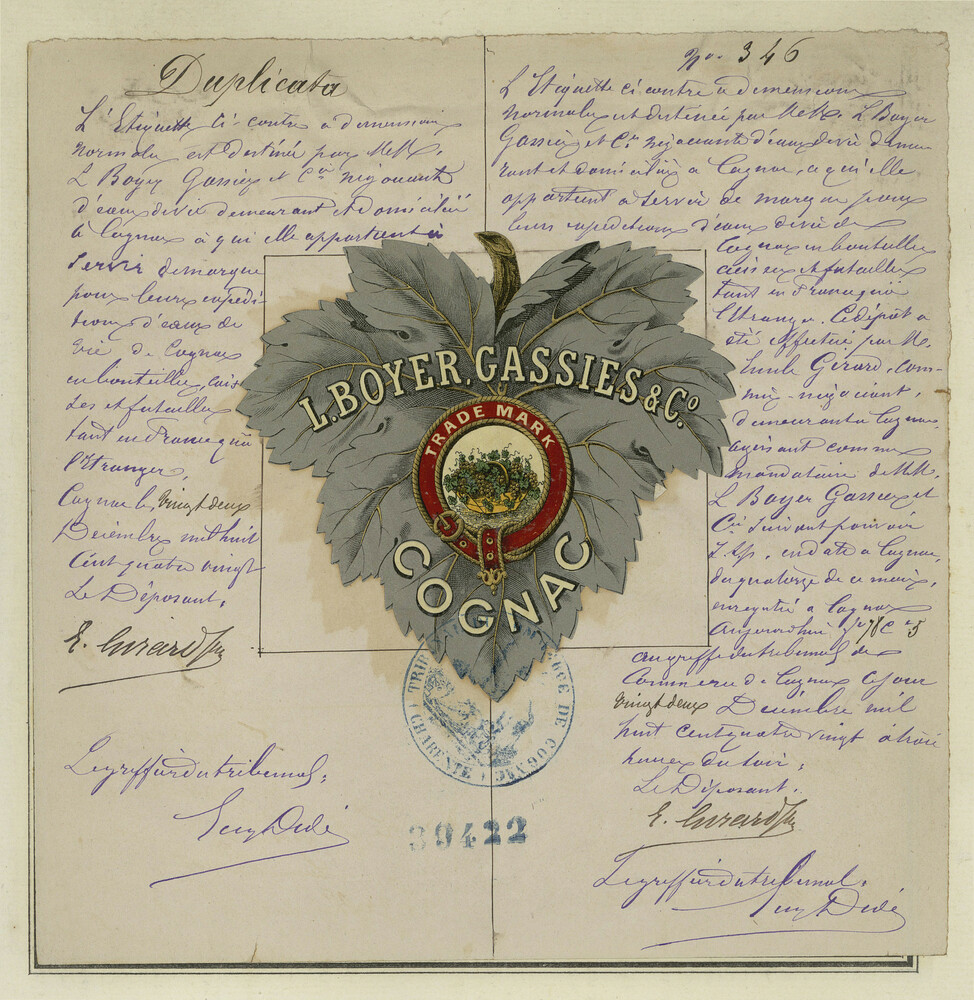 Duplicata
L'Etiquette ci-contre a dimensions
normales est destinée par MM.
L Boyer Gassies et Cie négociants
d'eaux de vie demeurant et domiciliés
à Cognac à qui elle appartient à
servir de marque
pour leurs expédi-
tions d'eaux de
vie de Cognac
en bouteilles, cais-
ses et futailles
tant en France qu'à
l'Etranger.
Cognac le, vingt deux
Décembre mil huit
cent quatre vingt
Le Déposant,
E. Girard
Le greffier du tribunal,
No. 346
L'Etiquette ci contre a dimensions
normales est destinée par MM. L Boyer
Gassies et Cie négociants d'eaux de vie demeu
rant et domiciliés a Cognac, a qui elle
appartient a servir de marque pour
leurs expéditions d'eaux de vie de
Cognac en bouteilles
caisses et futailles
tant en France qu'à
l'Etranger. Ce dépôt a
été effectué par M.
Emile Girard, com-
mis-négociant,
demeurant a Cognac
agissant comme
mandataire de MM.
L Boyer Gassies et
Cie suivant pouvoir
S.S.P., en date a Cognac,
du quatorze de ce mois,
enregistré a Cognac
Aujourd'hui fo 78 C 5
au greffe du tribunal de
Commerce de Cognac ce jour
vingt deux Décembre mil
huit cent quatre vingt à trois
heures du soir,
Le Déposant.
E. Girard
Le greffier du tribunal,
L. BOYER, GASSIES & Co.
TRADE MARK
COGNAC
TRIB CE DE COGNAC (CHARENTE)
39422